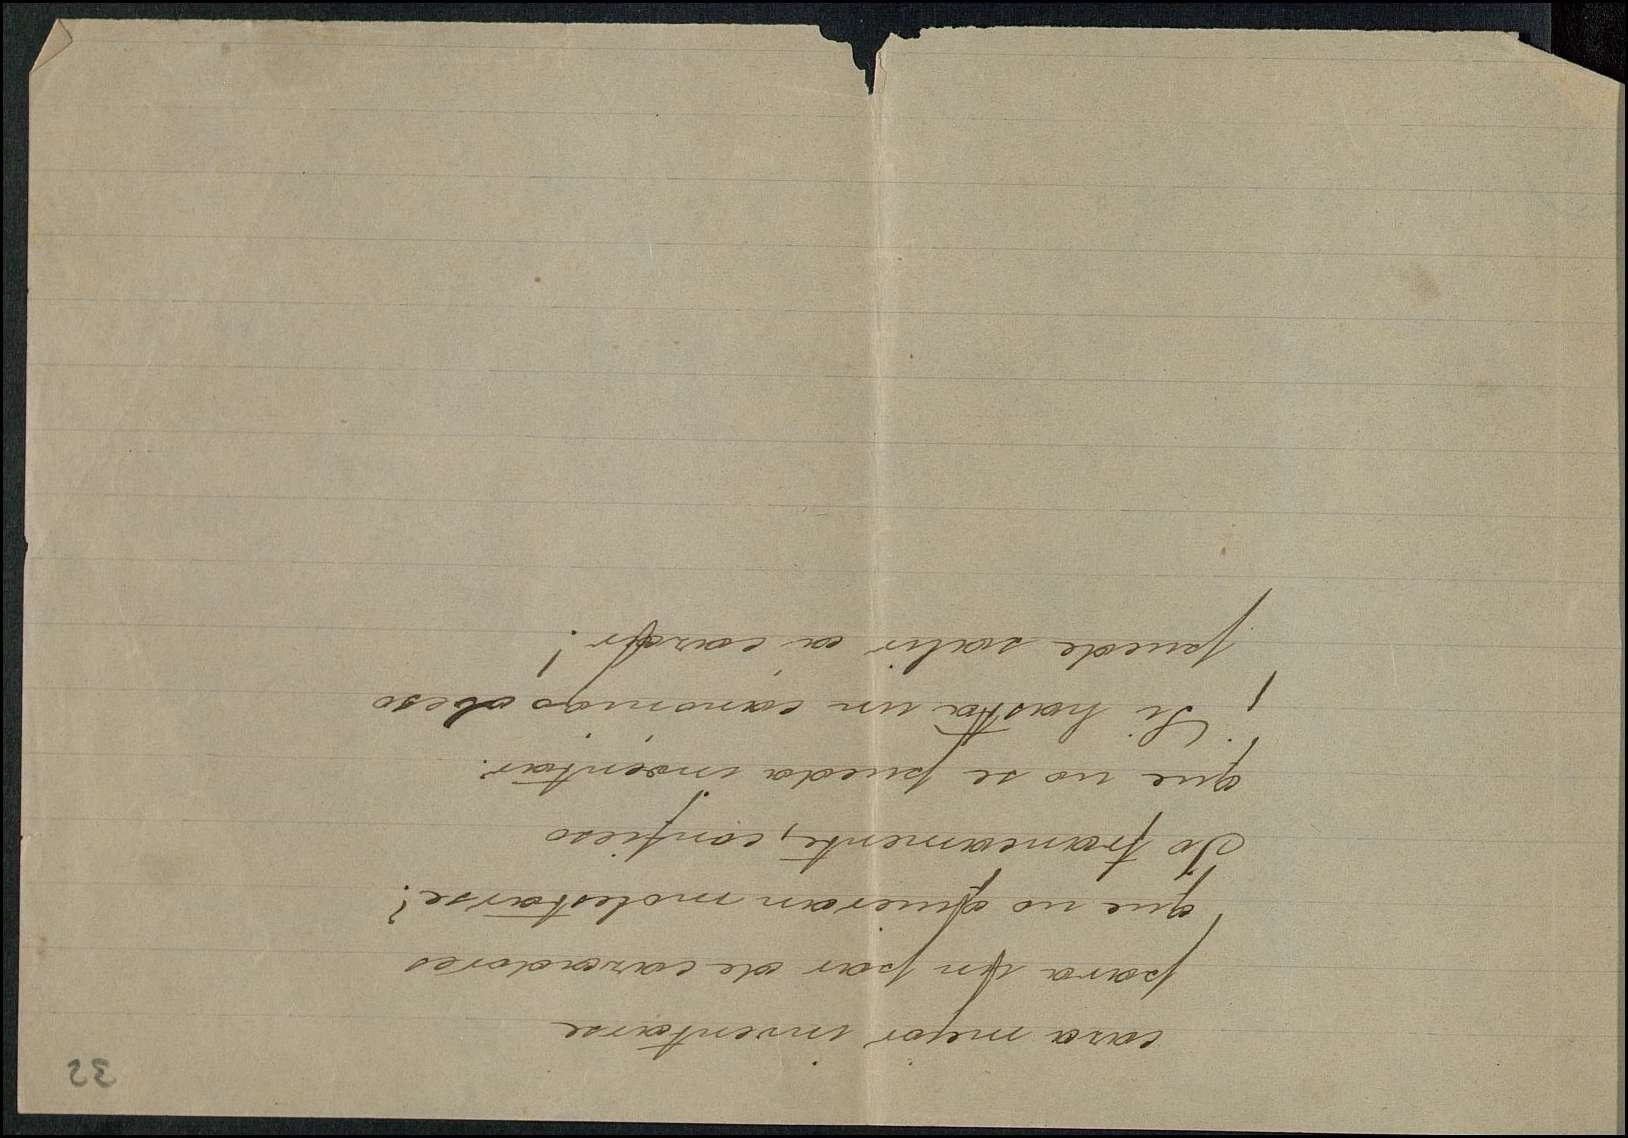 32
cara mejor inventarse
para un par de cazadores
que no quieran molestarse?
Yo francamente, confieso
que no se pueda inventar.
¡Si hasta un canónigo obeso
puede salir a cazar!